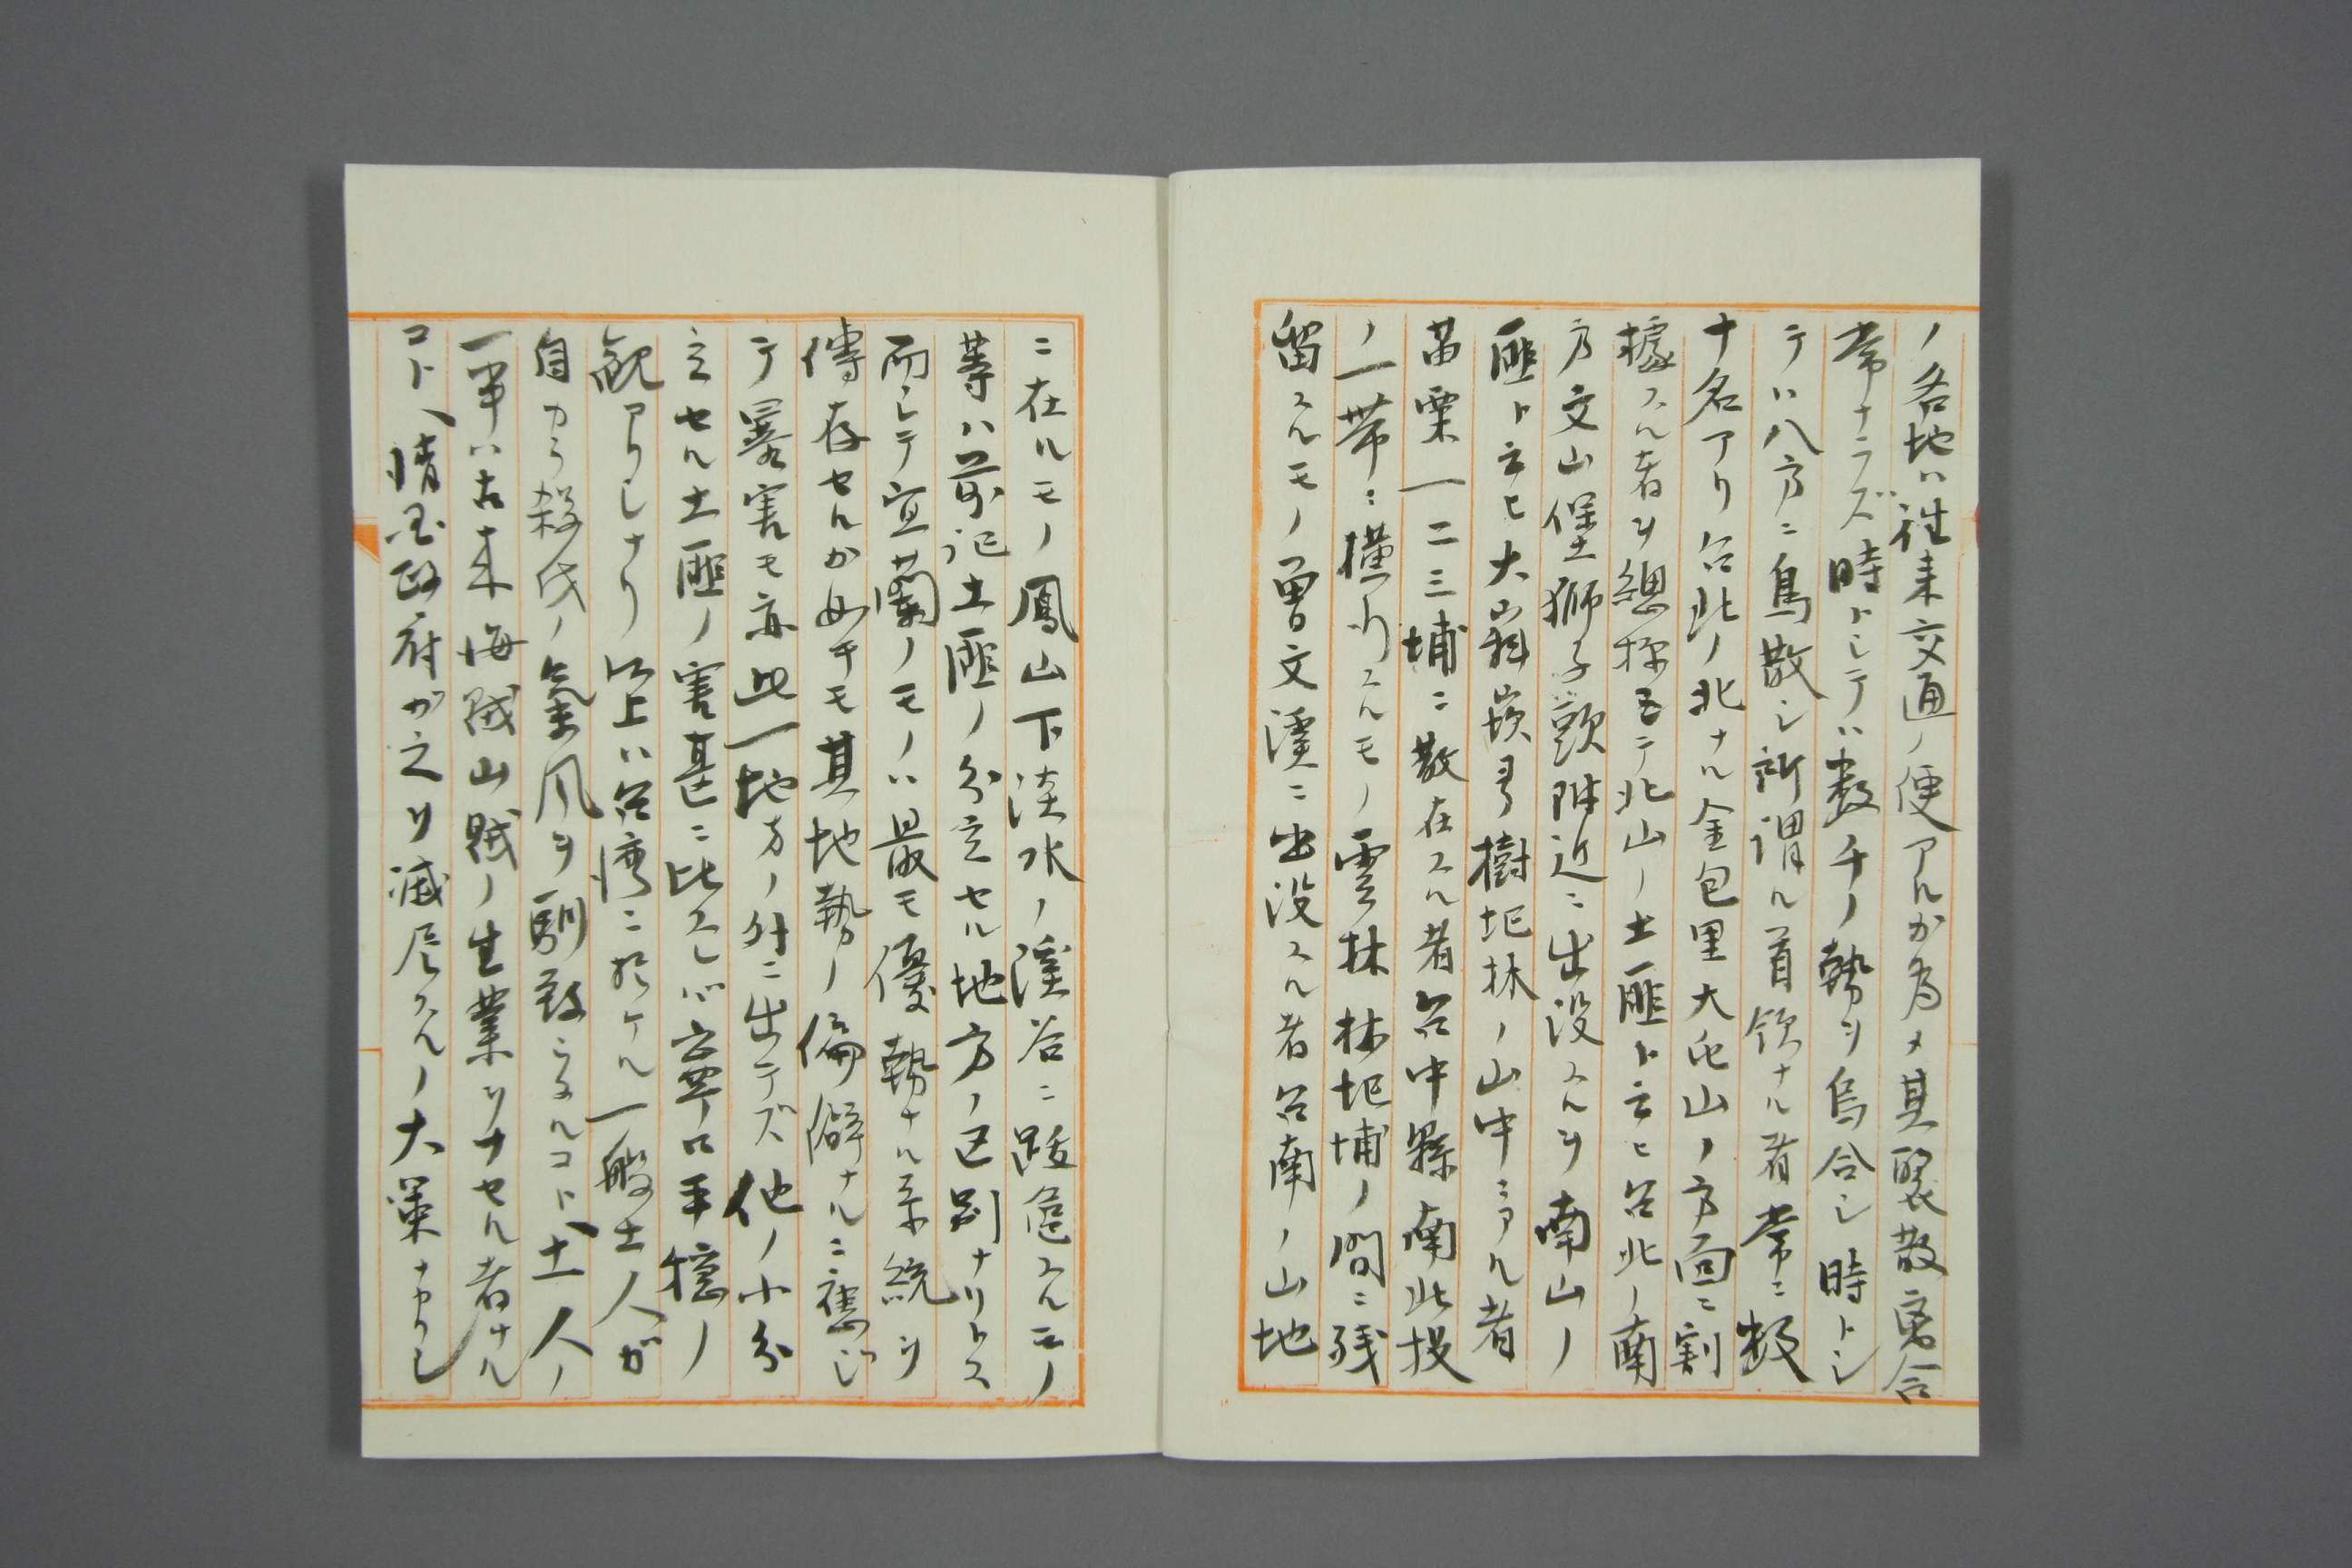 ノ各地ハ往来交通ノ便アルガ為メ其聚散离合
常ナラズ時トシテハ數千ノ勢ヲ烏合シ時トシ
テハ八方ニ鳥散シ所謂ル首領ナル者常ニ数
十名アリ台北ノ北ナル金包里大屯山ノ方面ニ割
據スル者ヲ總称シテ北山ノ土匪ト云ヒ台北ノ南
方文山堡獅子頭附近ニ出没スルヲ南山ノ
匪ト云ヒ大嵙崁ヨリ樹圯林ノ山中ニアル者
苗栗一二三埔ニ散在スル者台中縣南北投
ノ一帯ニ横行スルモノ雲林林圯埔ノ間ニ残
留スルモノ曽文溪ニ出没スル者台南ノ山地
ニ在ルモノ鳳山下淡水ノ溪谷ニ跋扈スルモノ
等ハ前記土匪ノ分立セル地方ノ区別ナリトス
而シテ宜蘭ノモノハ最モ優勢ナル系統ヲ
傳存セルカ如キモ其地勢ノ偏僻ナルニ應ジ
テ暴害モ亦此一地方ノ外ニ出デズ他ノ小分
立セル土匪ノ害甚ニ比スレバ寧ロ平穏ノ
観アリシナリ以上ハ台湾ニ於ケル一般土人ガ
自カラ殺伐ノ氣風ヲ馴致シタルコト土人ノ
一半ハ古来海賊山賊ノ生業ヲナセル者ナル
コト清国政府ガ之ヲ滅尽スルノ大策ナカリシ